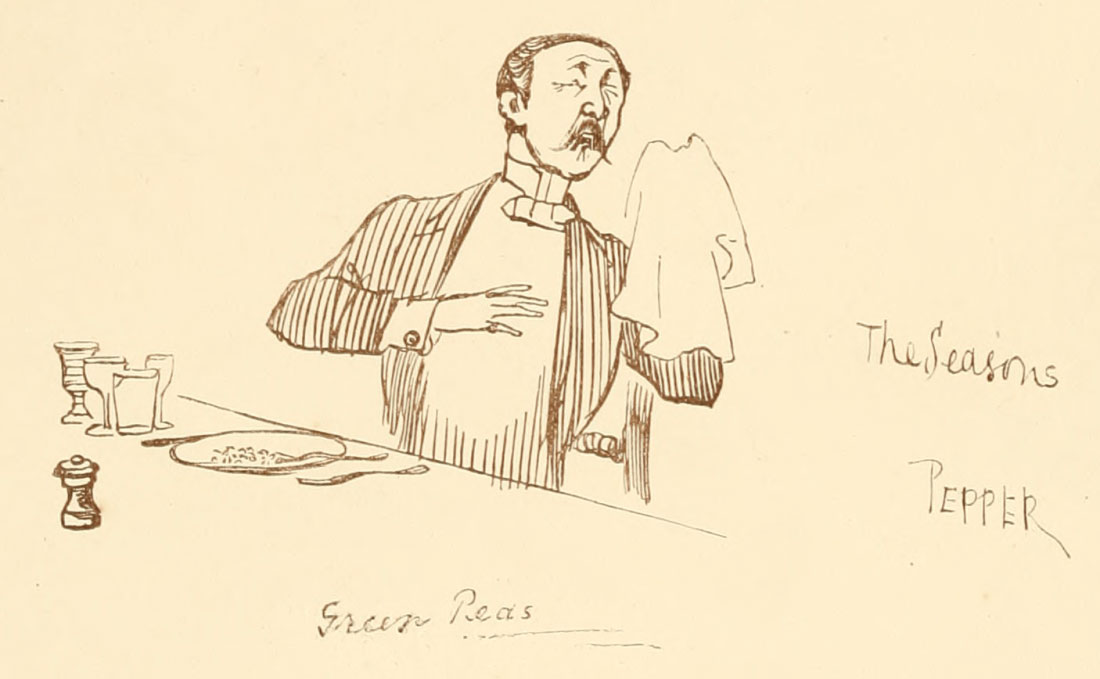 The Seasons
PEPPER
Green Peas